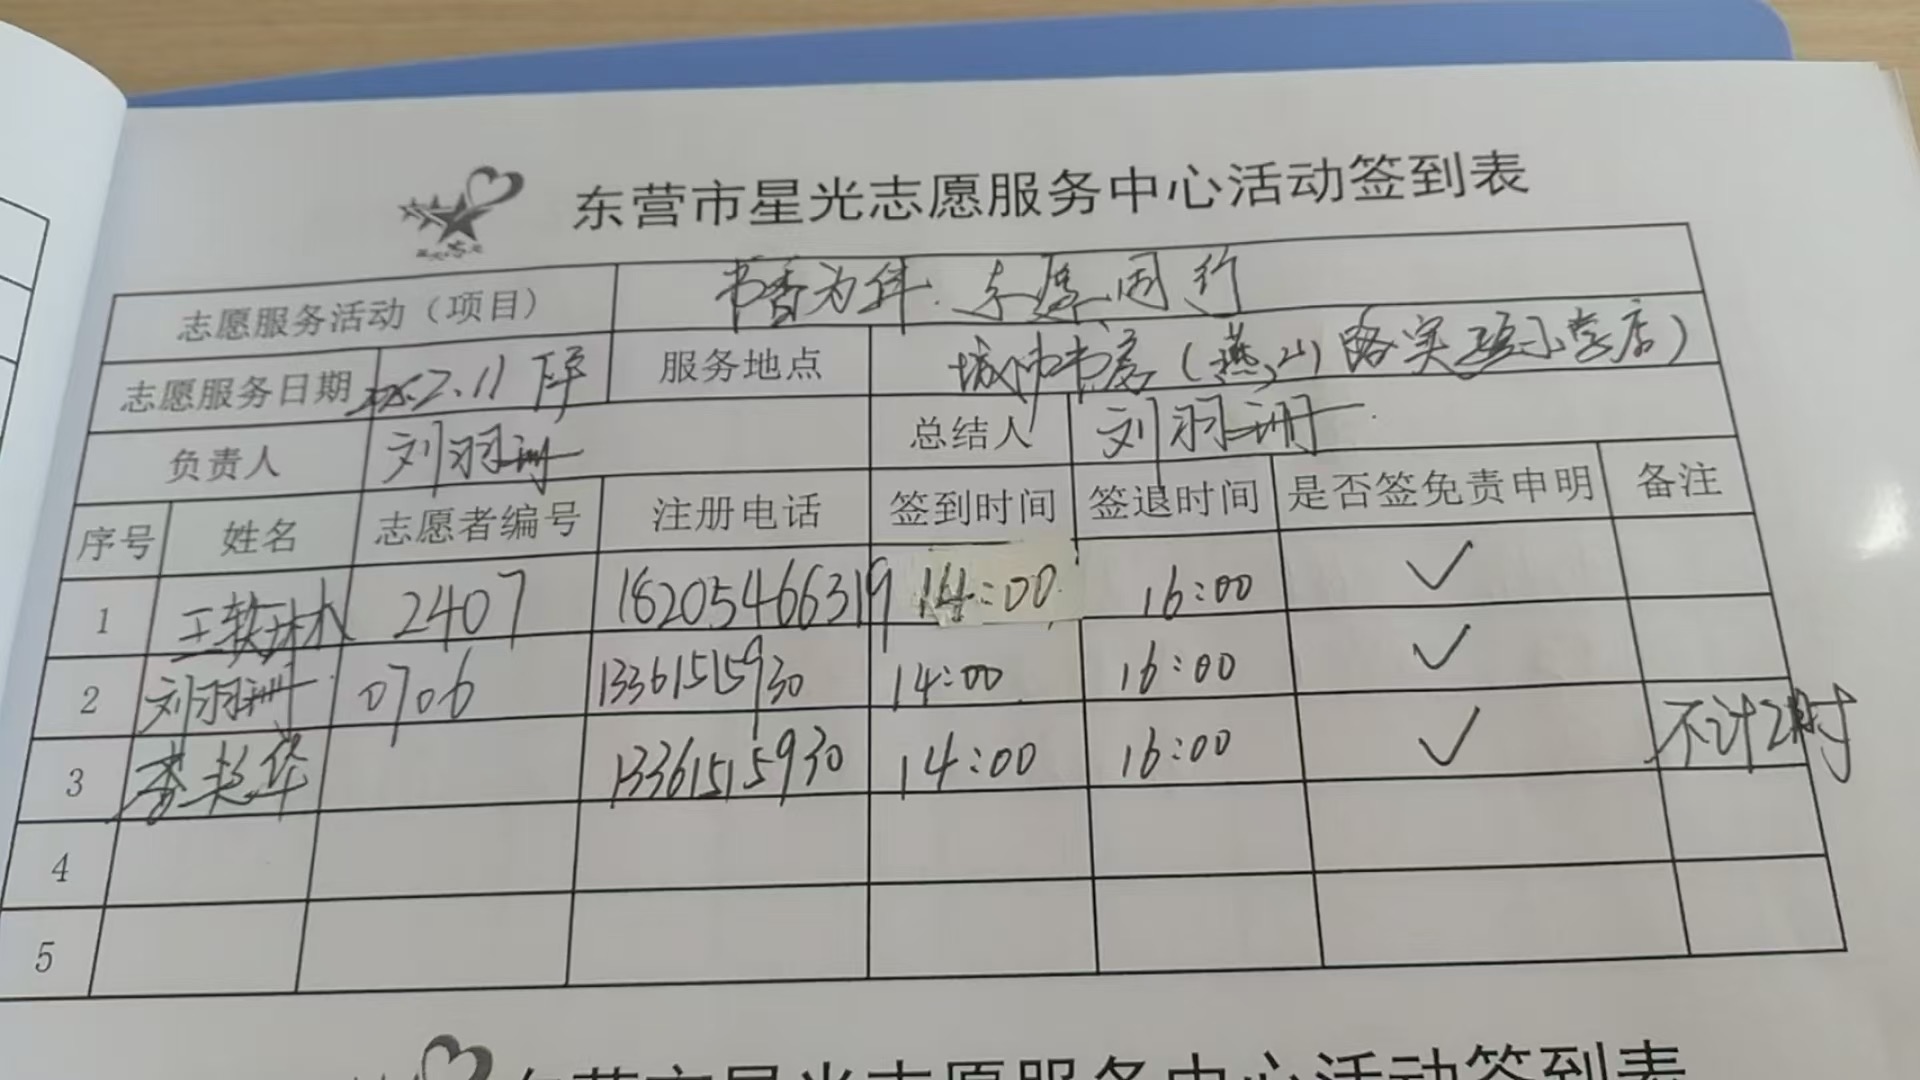 东营市星光志愿服务中心活动签到表
志愿服务活动（项目） 书香为伴 志愿同行
志愿服务日期 2025.2.11 下午 服务地点 城市书房（燕山路实验小学店）
负责人 刘羽珊 总结人 刘羽珊
序号 姓名 志愿者编号 注册电话 签到时间 签退时间 是否签免责申明 备注
1 王 林 2407 18205466319 14:00 16:00 ✓
2 刘羽珊 0706 13361515930 14:00 16:00 ✓
3 李 华 13361515930 14:00 16:00 ✓ 不计时
4
5
东营市星光志愿服务中心活动签到表